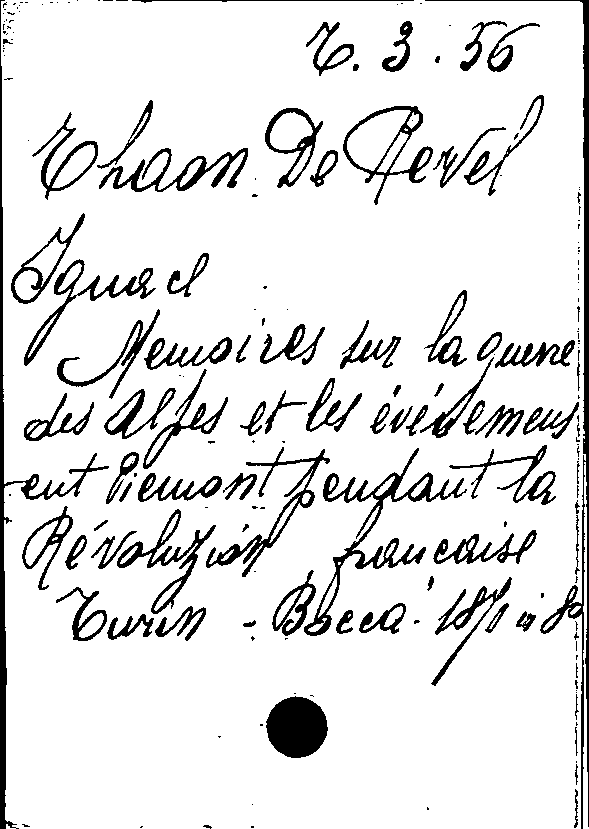 T. 3. 56
Thaon De Revel
Ignace
Memoires sur la guerre
des Alpes et les événemens
ent Piemont pendant la
Révoluzión francaise
Turin - Bocca - 1871 in 8º